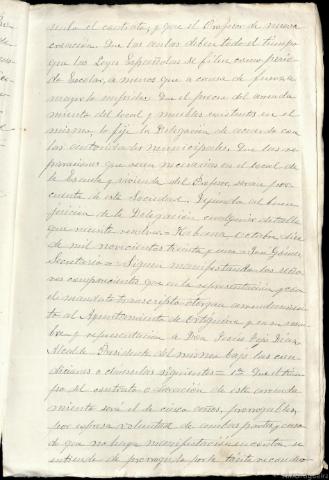 senta el contrato, y que el Profesor de nueva
creacion. Que las aulas deben todo el tiempo
que las Leyes Españolas se fijen como perio-
do Escolar, a menos que a causa de fuerza
mayor lo impidan. Que el precio del arrenda
miento del local y muebles existentes en el
mismo, lo fije la Delegación de acuerdo con
las autoridades municipales. Que las re-
paraciones que sean necesarias en el local de
la Escuela y vivienda del Profesor, seran por
cuenta de esta Sociedad. Dejando al buen
juicio de la Delegación cualquier detalle
que necesite resolver = Habana Octubre diez
de mil novecientos treinta y uno = Juan Gómez
Secretario = Siguen manifestando los seño-
res comparecientes que en la representación y caso
de mandato transcripto otorgan arrendamien
to al Ayuntamiento de Ortigueira y en su nom
bre y representación a Don Jesús Díaz
Alcalde Presidente del mismo bajo las con-
diciones o cláusulas siguientes = 1ª Que el tiem
po del contrato o duración de este arrenda
miento será el de cinco años, prorrogables
por expresa voluntad de ambas partes y caso
de que no haya manifestación en contra se
entiende de prorroga por la tácita reconduc